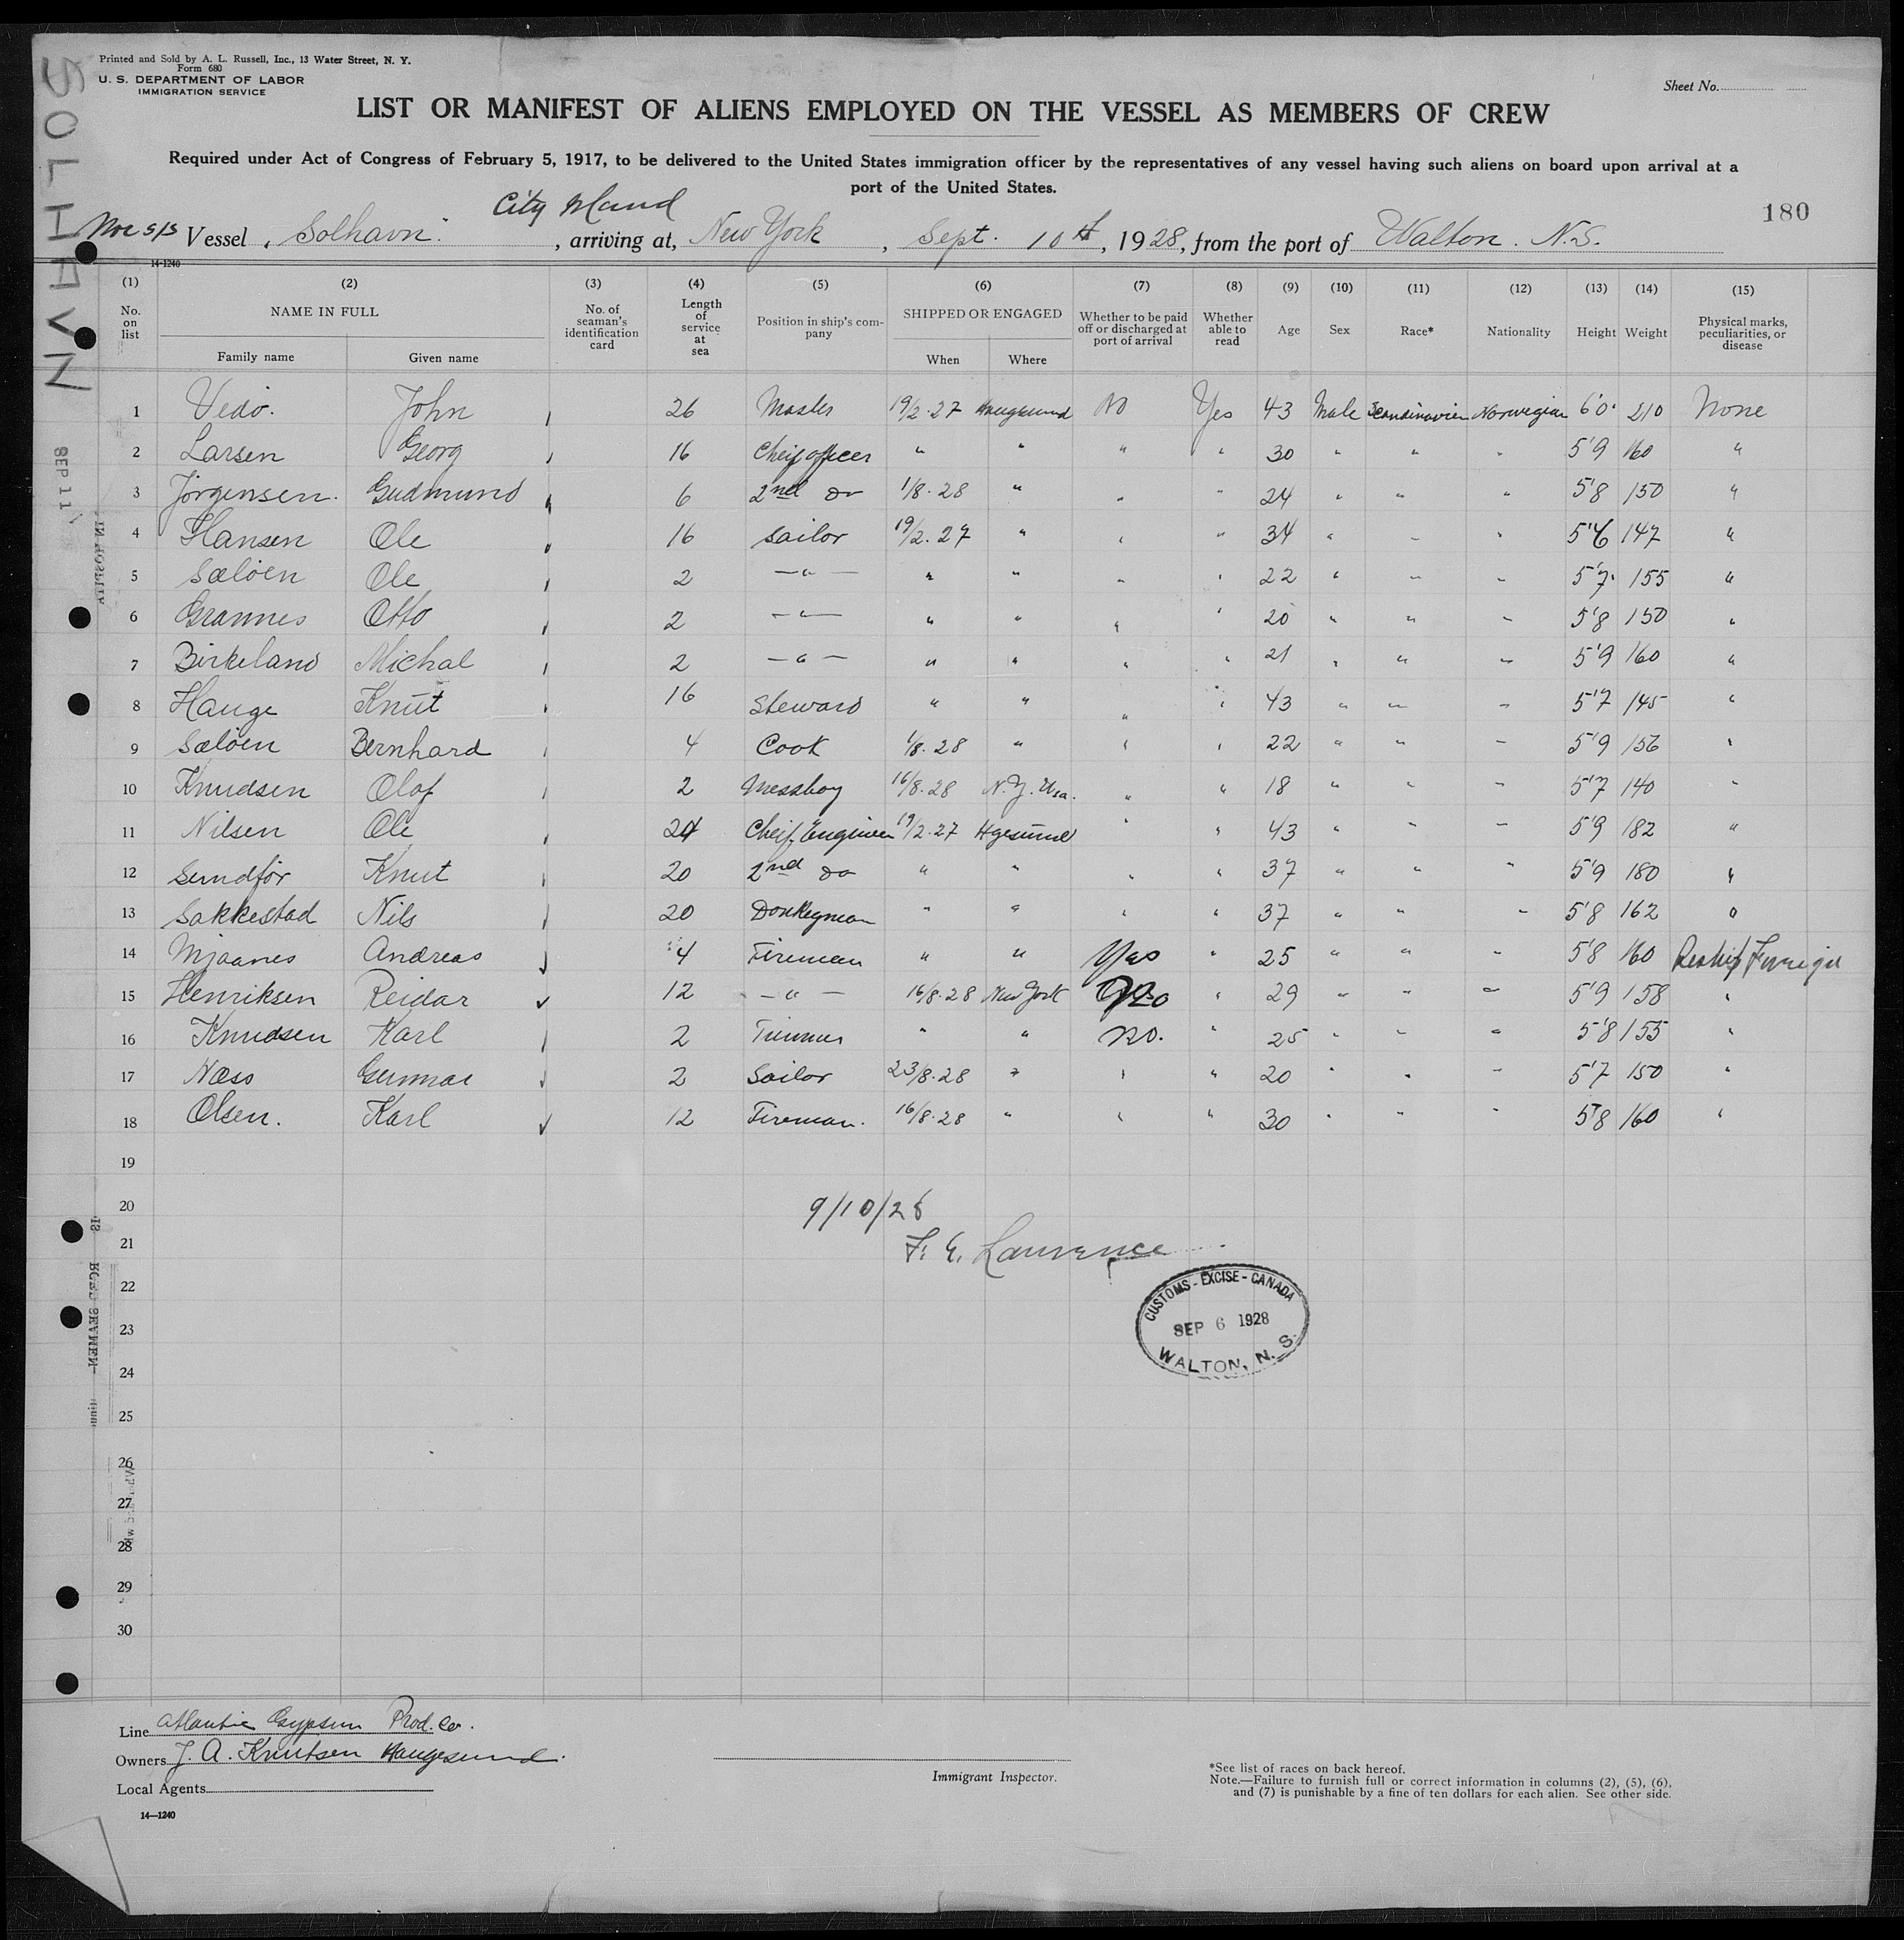 Printed and Sold by A. L. Russell, Inc., 13 Water Street, N. Y.
Form 680
U. S. DEPARTMENT OF LABOR
IMMIGRATION SERVICE
Sheet No.
SOLHAVN
LIST OR MANIFEST OF ALIENS EMPLOYED ON THE VESSEL AS MEMBERS OF CREW
Required under Act of Congress of February 5, 1917, to be delivered to the United States immigration officer by the representatives of any vessel having such aliens on board upon arrival at a
port of the United States.
180
City Island
Nor s/s Vessel Solhavn , arriving at, New York , Sept. 10th, 1928, from the port of Walton. N.S.
14-1240
(1) (2) (3) (4) (5) (6) (7) (8) (9) (10) (11) (12) (13) (14) (15)
No. on list NAME IN FULL Family name Given name No. of seaman's identification card Length of service at sea Position in ship's company SHIPPED OR ENGAGED When Where Whether to be paid off or discharged at port of arrival Whether able to read Age Sex Race* Nationality Height Weight Physical marks, peculiarities, or disease
1 Vedø. John 26 Master 19/2.27 Haugesund No Yes 43 Male Scandinavien Norwegian 6'0" 210 None
2 Larsen Georg 16 Cheif officer " " " " 30 " " " 5'9 160 "
3 Jörgensen. Gudmund 6 2nd do 1/8.28 " " " 24 " " " 5'8 150 "
4 Hansen Ole 16 Sailor 19/2.27 " " " 34 " " " 5'6 147 "
5 Sæløen Ole 2 — " — " " " " 22 " " " 5'7" 155 "
6 Grannes Otto 2 — " — " " " " 20 " " " 5'8 150 "
7 Birkeland Michal 2 — " — " " " " 21 " " " 5'9 160 "
8 Hauge Knut 16 Steward " " " " 43 " " " 5'7 145 "
9 Sæløen Bernhard 4 Cook 1/8.28 " " " 22 " " " 5'9 156 "
10 Knudsen Olaf 2 Messboy 16/8.28 N.Y. Usa. " " 18 " " " 5'7 140 "
11 Nilsen Ole 24 Cheif Engineer 19/2.27 Hgesund " " 43 " " " 5'9 182 "
12 Knut 20 2nd do " " " " 37 " " " 5'9 180 "
13 Sakkestad Nils 20 Donkeyman " " " " 37 " " " 5'8 162 "
14 Mjaanes Andreas 4 Fireman " " Yes " 25 " " " 5'8 160 Reship Foreign
15 Henriksen Reidar 12 — " — 16/8.28 New York No " 29 " " " 5'9 158 "
16 Knudsen Karl 2 " " no. " 25 " " " 5'8 155 "
17 Næss Gunnar 2 Sailor 23/8.28 " " " 20 " " " 5'7 150 "
18 Olsen. Karl 12 Fireman. 16/8.28 " " " 30 " " " 5'8 160 "
19
20
21
22
23
24
25
26
27
28
29
30
SEP 11
9/10/28
F. E. Lawrence
CUSTOMS - EXCISE - CANADA
SEP 6 1928
WALTON, N. S.
Line Atlantic Gypsum Prod. Co.
Owners J. A. Knutsen Haugesund.
Local Agents
14—1240
Immigrant Inspector.
*See list of races on back hereof.
Note.—Failure to furnish full or correct information in columns (2), (5), (6),
and (7) is punishable by a fine of ten dollars for each alien. See other side.